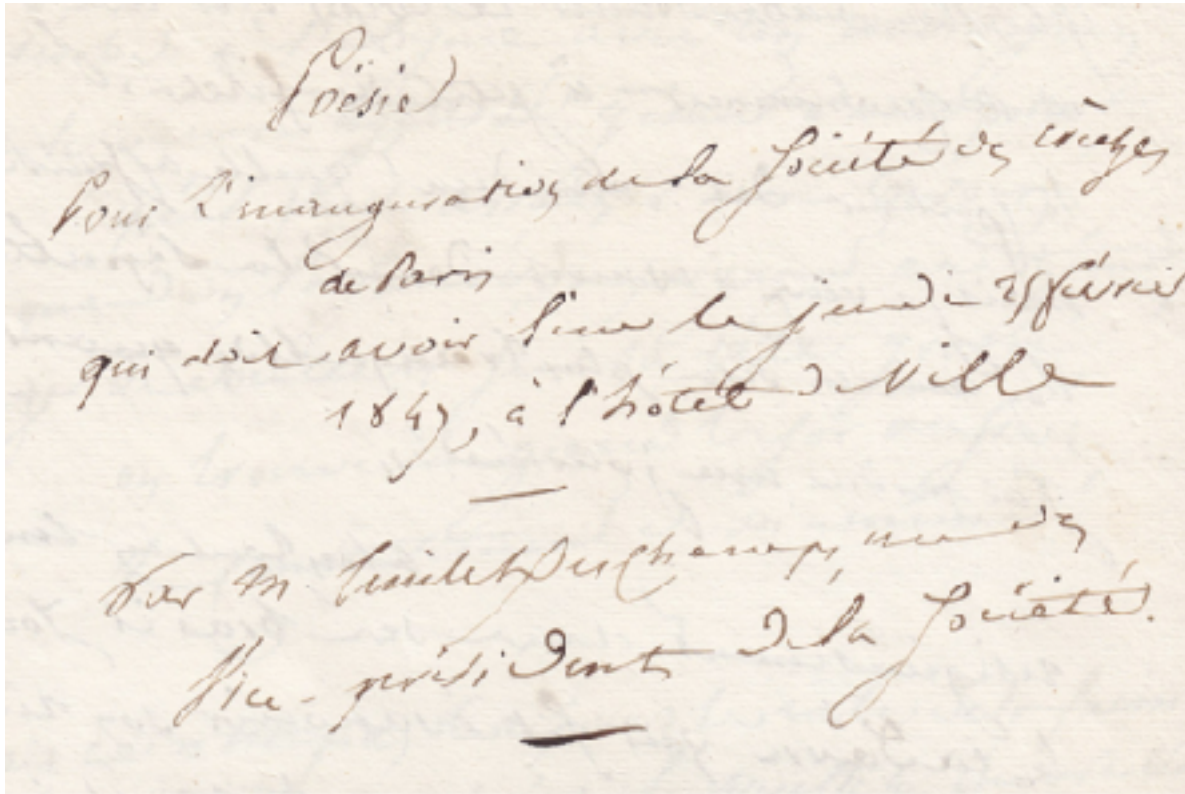 Poésie
Pour l'inauguration de la Société des Crèches
de Paris
qui doit avoir lieu le jeudi 25 février
1847, à l'hôtel de Ville
par M. Emile Deschamps, un des
Vice-présidents de la Société.